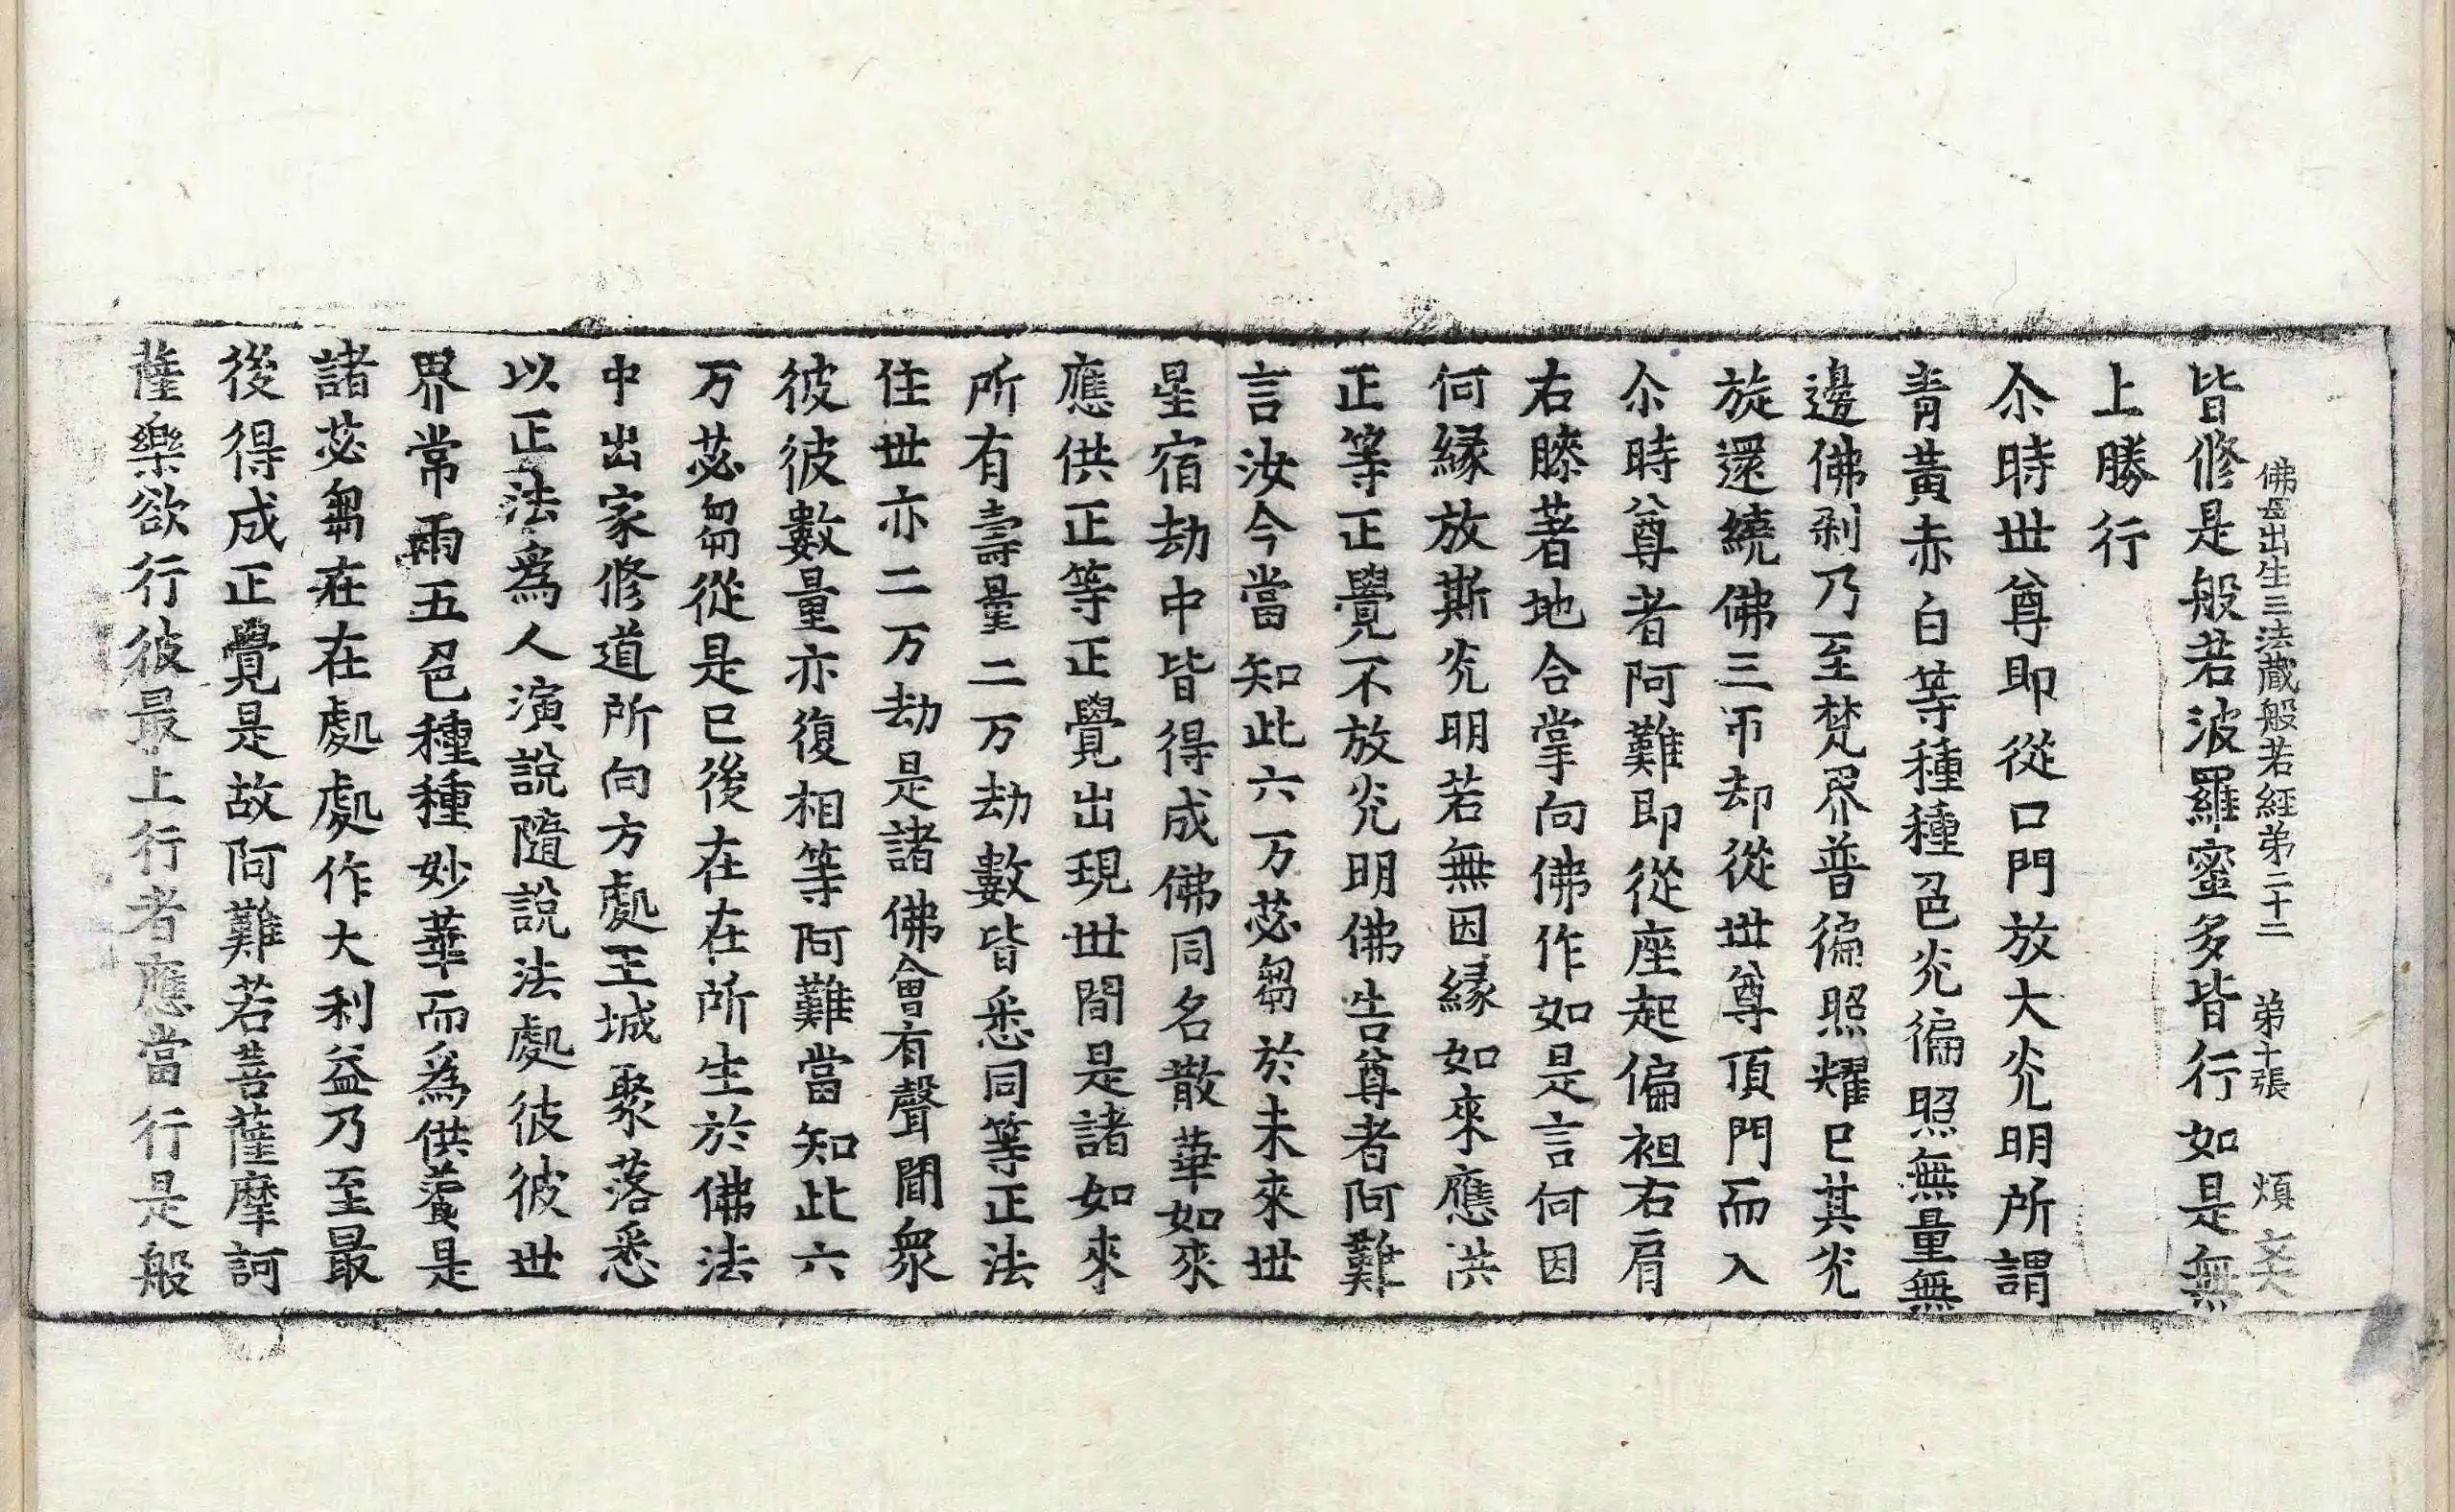 佛母出生三法藏般若經第二十二 第十張 煩
皆修是般若波羅蜜多皆行如是無
上勝行
尒時世尊即從口門放大光明所謂
青黃赤白等種種色光徧照無量無
邊佛剎乃至梵界普徧照耀已其光
旋還繞佛三帀却從世尊頂門而入
尒時尊者阿難即從座起偏袒右肩
右膝著地合掌向佛作如是言何因
何緣放斯光明若無因緣如來應供
正等正覺不放光明佛告尊者阿難
言汝今當知此六万苾芻於未來世
星宿劫中皆得成佛同名散華如來
應供正等正覺出現世間是諸如來
所有壽量二万劫數皆悉同等正法
住世亦二万劫是諸佛會有聲聞眾
彼彼數量亦復相等阿難當知此六
万苾芻從是已後在在所生於佛法
中出家修道所向方處王城聚落悉
以正法為人演說隨說法處彼彼世
界常雨五色種種妙華而為供養是
諸苾芻在在處處作大利益乃至最
後得成正覺是故阿難若菩薩摩訶
薩樂欲行彼最上行者應當行是般